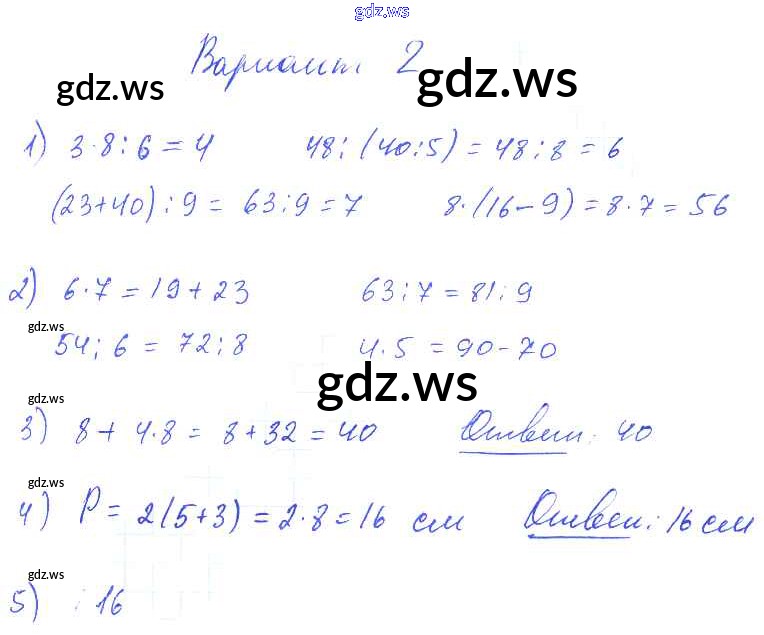 gdz.ws
Вариант 2
gdz.ws gdz.ws
1) 3·8:6=4 48:(40:5)=48:8=6
(23+40):9=63:9=7 8·(16-9)=8·7=56
2) 6·7=19+23 63:7=81:9
gdz.ws
54:6=72:8 4·5=90-70
gdz.ws
gdz.ws
3) 8+4·8=8+32=40 Ответ: 40
gdz.ws
4) P=2(5+3)=2·8=16 см Ответ: 16 см
gdz.ws
5) 16